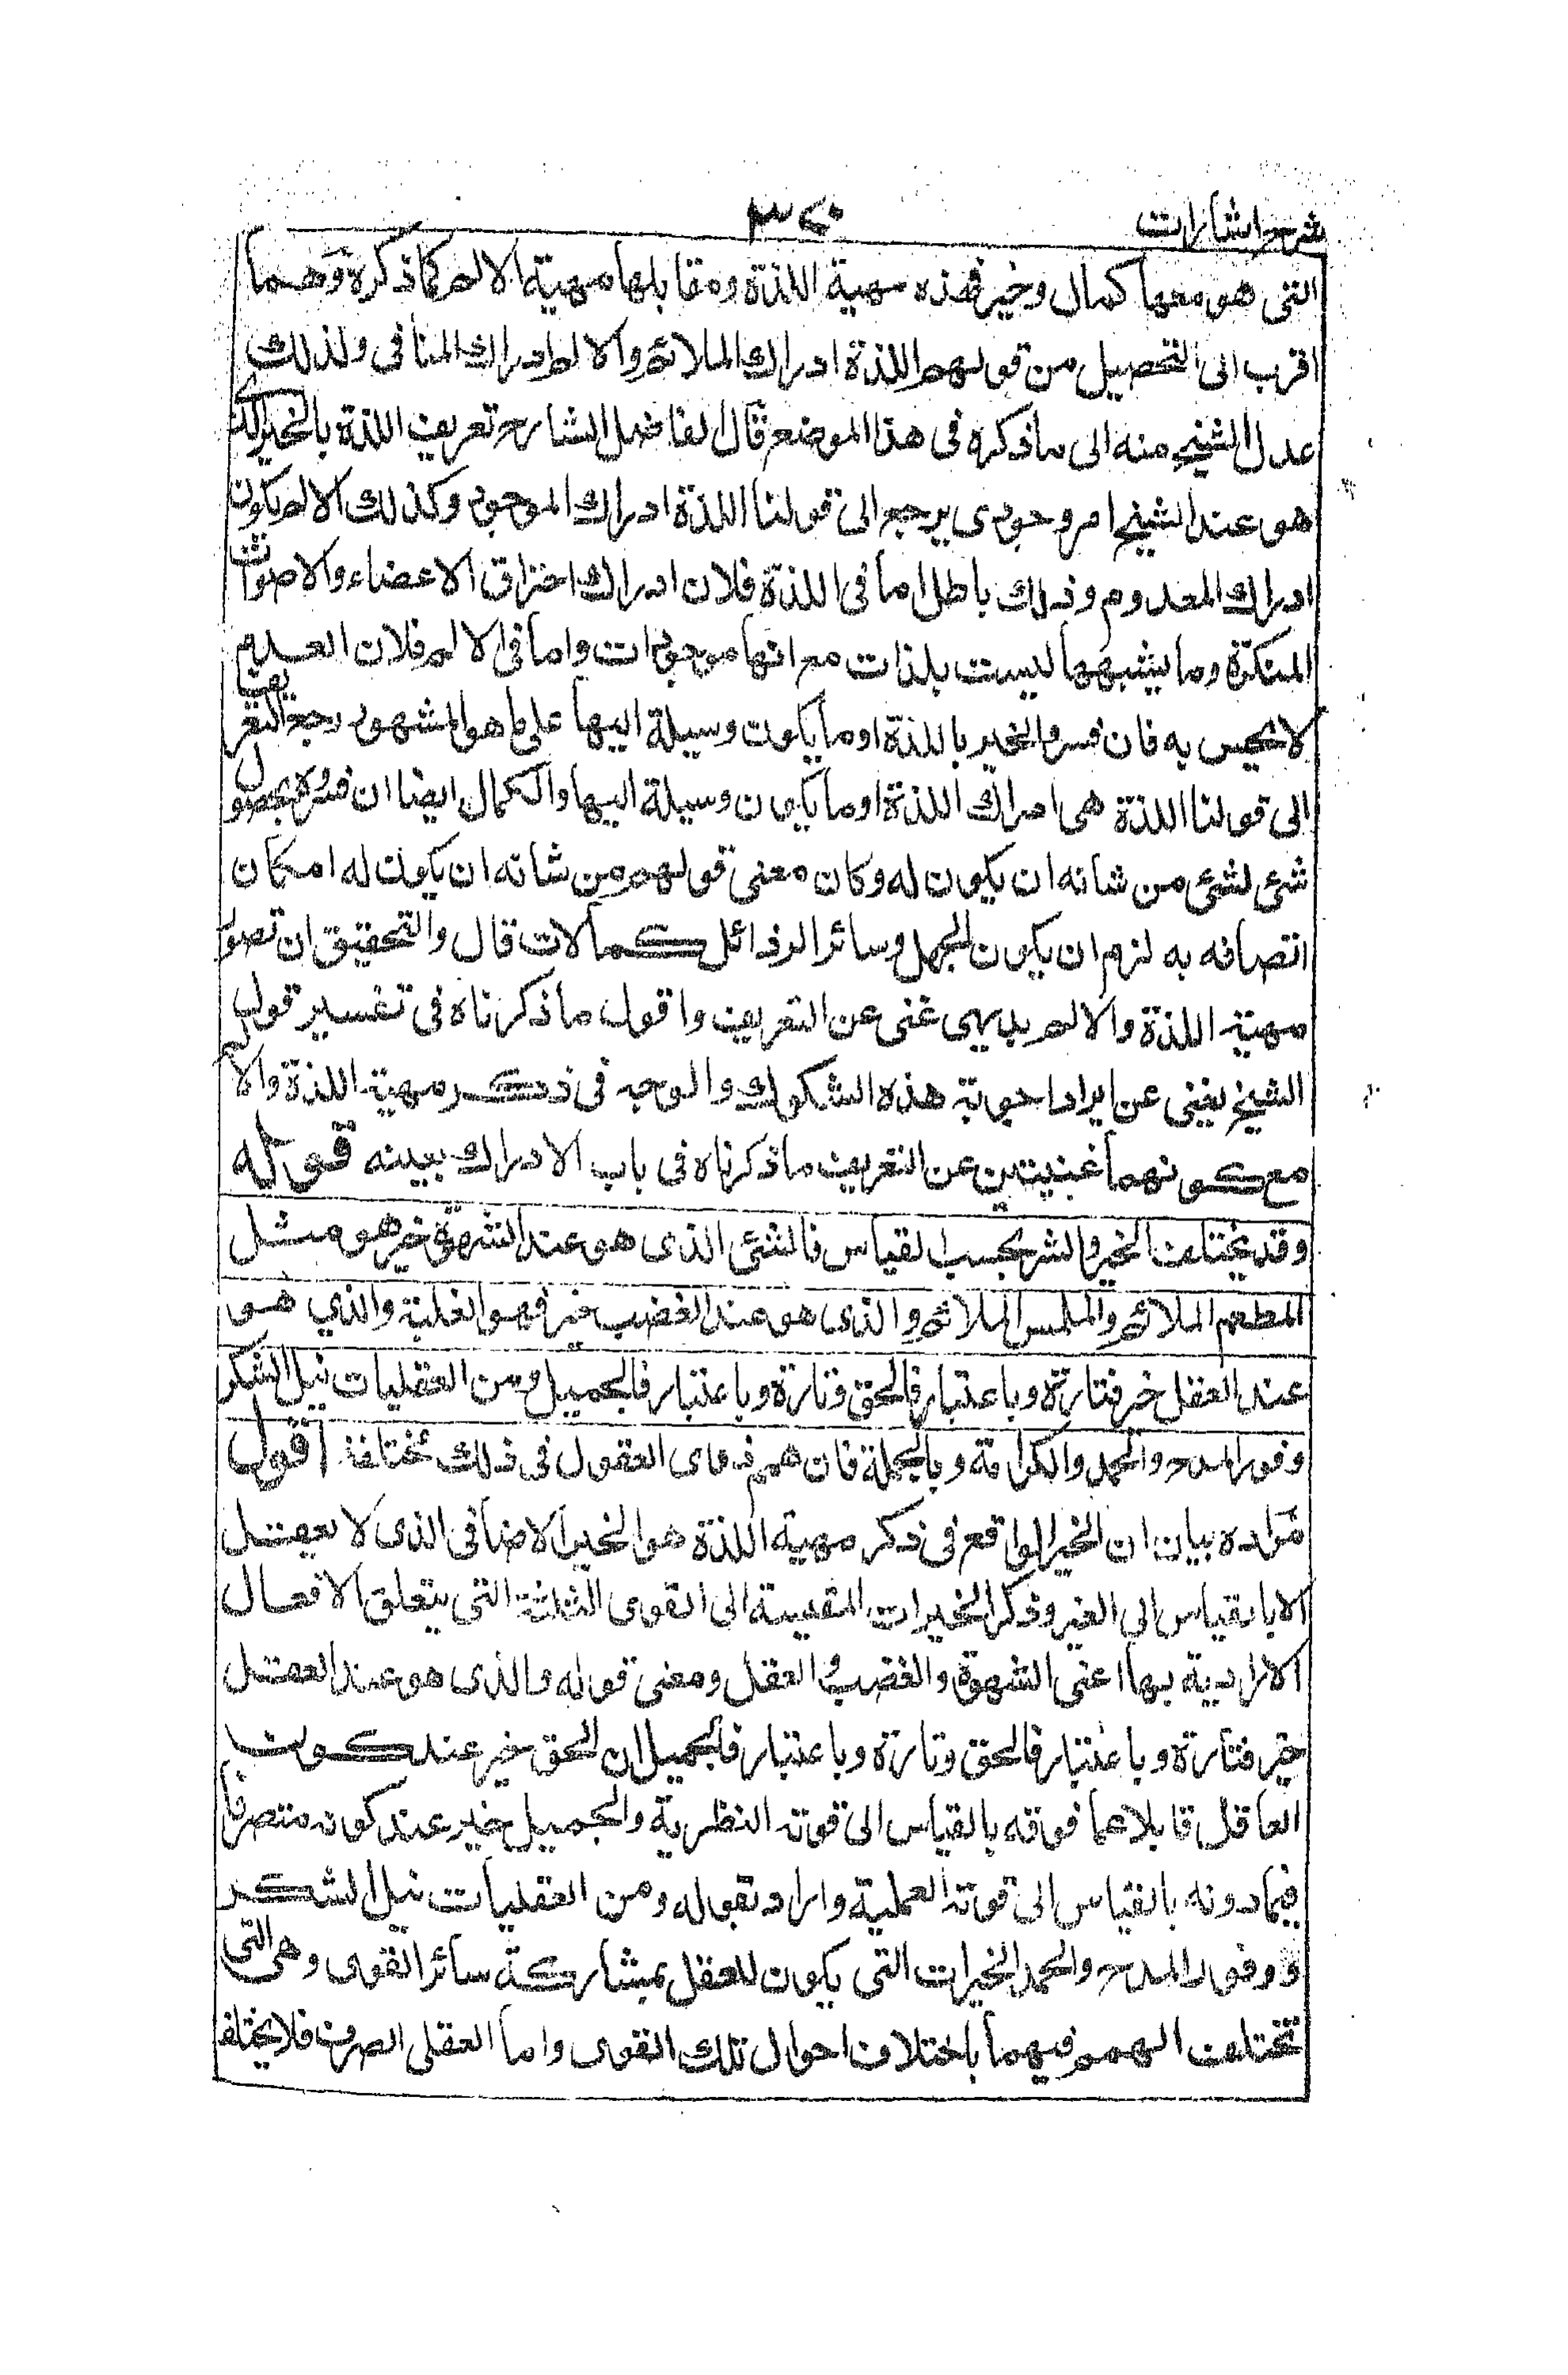 شرح اشارات
التى هو معها كمال وخير فهذه مهية اللذة ومقابلها مهية الالم كما ذكره وهما
اقرب الى التحصيل من قولهم اللذة ادراك الملائم والالم ادراك المنافى ولذلك
عدل الشيخ منه الى ما ذكره فى هذا الموضع قال الفاضل الشارح تعريف اللذة بالخير الذى
هو عند الشيخ امر وجودى يرجع الى قولنا اللذة ادراك الموجود وكذلك الالم يكون
ادراك المعدوم وذلك باطل اما فى اللذة فلان ادراك احتراق الاعضاء والاصوات
المنكرة وما يشبهها ليست بلذات مع انها موجودات واما فى الالم فلان العديم
لا يحس به فان فسروا الخير باللذة او ما يكون وسيلة اليها على ما هو المشهور رجع التعريف
الى قولنا اللذة هى ادراك اللذة او ما يكون وسيلة اليها والكمال ايضا ان فسروه بحصول
شئ لشئ من شانه ان يكون له وكان معنى قولهم من شانه ان يكون له امكان
اتصافه به لزم ان يكون الجهل وسائر الرذائل كمالات قال والتحقيق ان تصور
مهية اللذة والالم بديهى غنى عن التعريف واقول ما ذكرناه فى تفسير قول
الشيخ يغنى عن ايراد اجوبة هذه الشكوك والوجه فى ذكر مهية اللذة والالم
مع كونهما غنيتين عن التعريف ما ذكرناه فى باب الادراك بعينه قوله
وقد يختلف الخير والشر بحسب القياس فالشئ الذى هو عند الشهوة خير هو مثل
المطعم الملائم والملمس الملائم والذى هو عند الغضب خير فهو الغلبة والذي هو
عند العقل خير فتارة وباعتبار فالحق وتارة وباعتبار فالجميل ومن العقليات نيل الشكر
وفور المدح والحمد والكرامة وبالجملة فان همم ذوى العقول فى ذلك مختلفة اقول
مراده بيان ان الخير الواقع فى ذكر مهية اللذة هو الخير الاضافى الذى لا يعقل
الا بالقياس الى الغير وذكر الخيرات المقيسة الى القوى الثلثة التى يتعلق الافعال
الارادية بها اعنى الشهوة والغضب والعقل ومعنى قوله والذى هو عند العقل
خير فتارة وباعتبار فالحق وتارة وباعتبار فالجميل ان الحق خير عند كون
العاقل قابلا عما فوقه بالقياس الى قوته النظرية والجميل خير عند كونه متصرفا
فيما دونه بالقياس الى قوته العملية واراد بقوله ومن العقليات نيل الشكر
و وفور المدح والحمد الخيرات التى يكون للعقل بمشاركة سائر القوى وهى التى
تختلف الهمم فيهما باختلاف احوال تلك القوى واما العقلى الصرف فلا يختلف